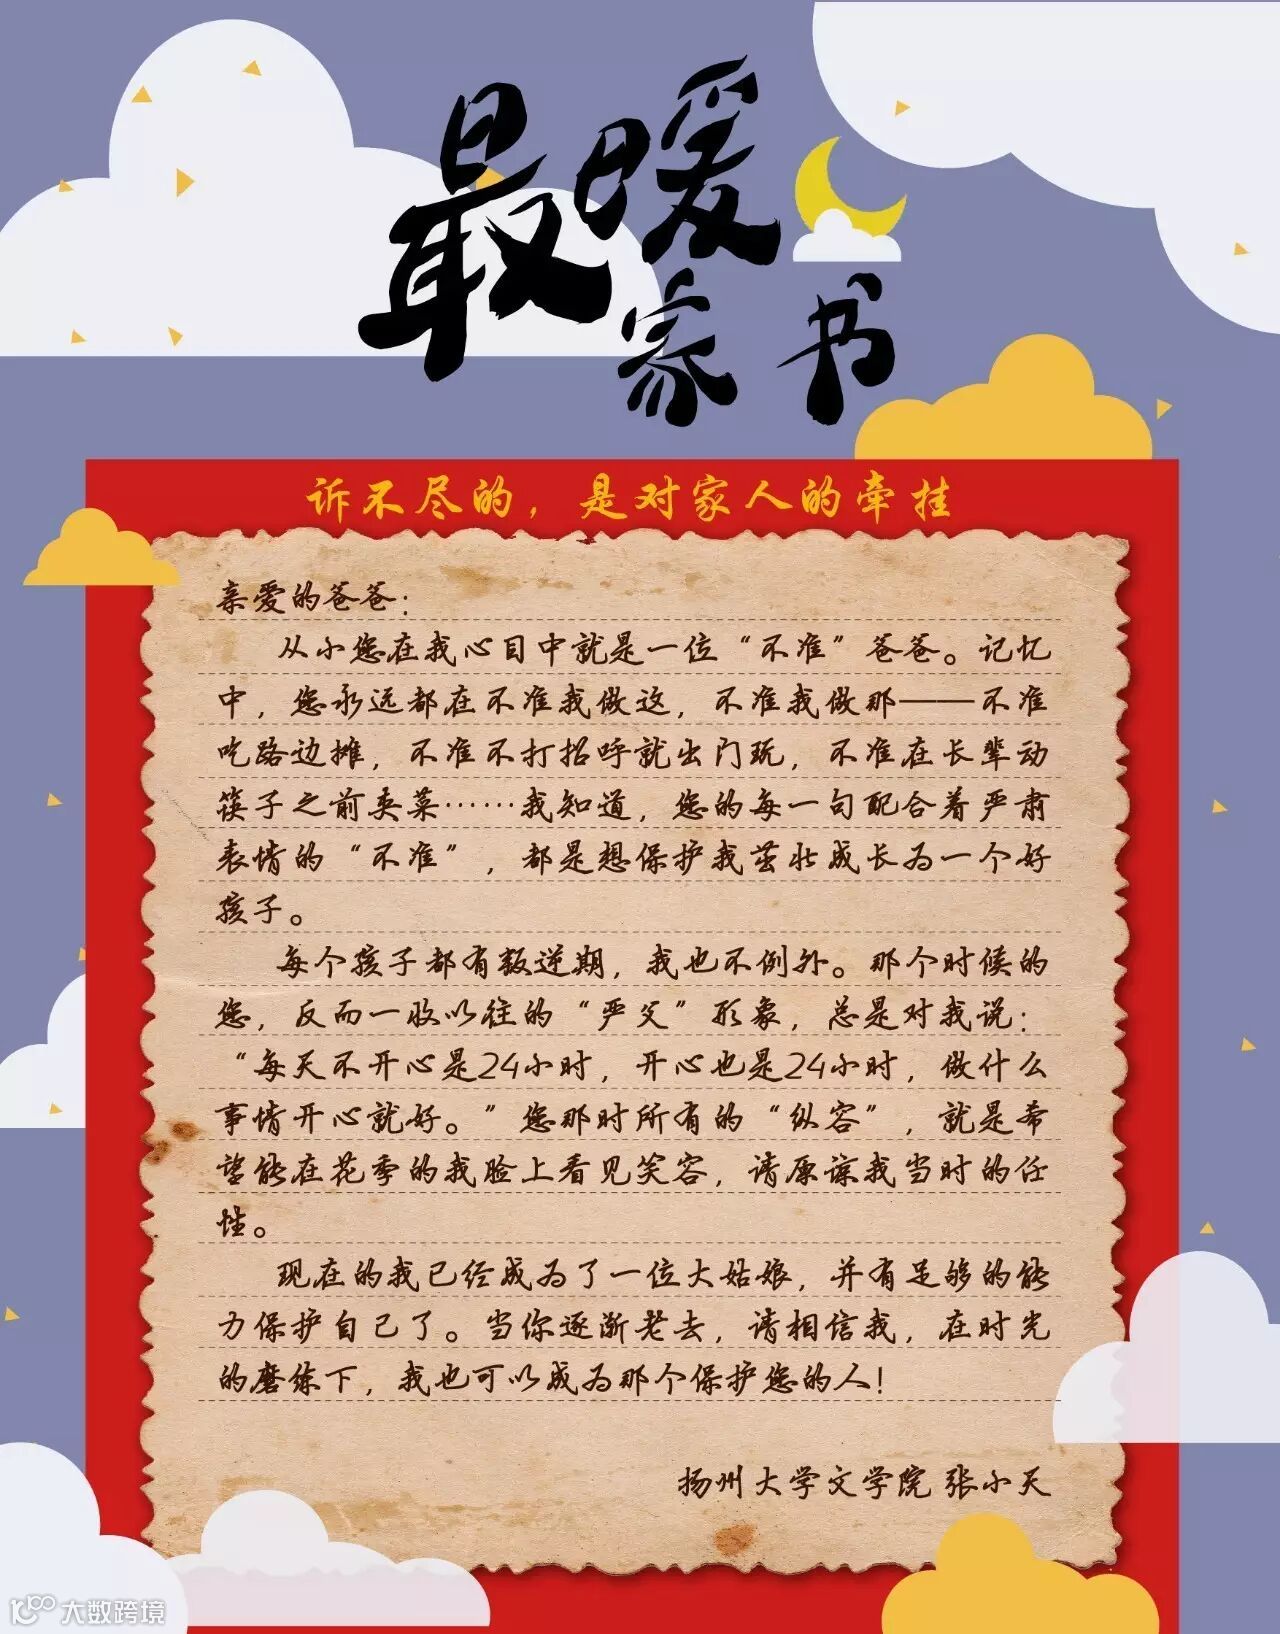 最暖
家书
诉不尽的，是对家人的牵挂
亲爱的爸爸：
从小您在我心目中就是一位“不准”爸爸。记忆
中，您永远都在不准我做这，不准我做那——不准
吃路边摊，不准不打招呼就出门玩，不准在长辈动
筷子之前夹菜……我知道，您的每一句配合着严肃
表情的“不准”，都是想保护我茁壮成长为一个好
孩子。
每个孩子都有叛逆期，我也不例外。那个时候的
您，反而一收以往的“严父”形象，总是对我说：
“每天不开心是24小时，开心也是24小时，做什么
事情开心就好。”您那时所有的“纵容”，就是希
望能在花季的我脸上看见笑容，请原谅我当时的任
性。
现在的我已经成为了一位大姑娘，并有足够的能
力保护自己了。当你逐渐老去，请相信我，在时光
的磨练下，我也可以成为那个保护您的人！
扬州大学文学院 张小天
大数跨境